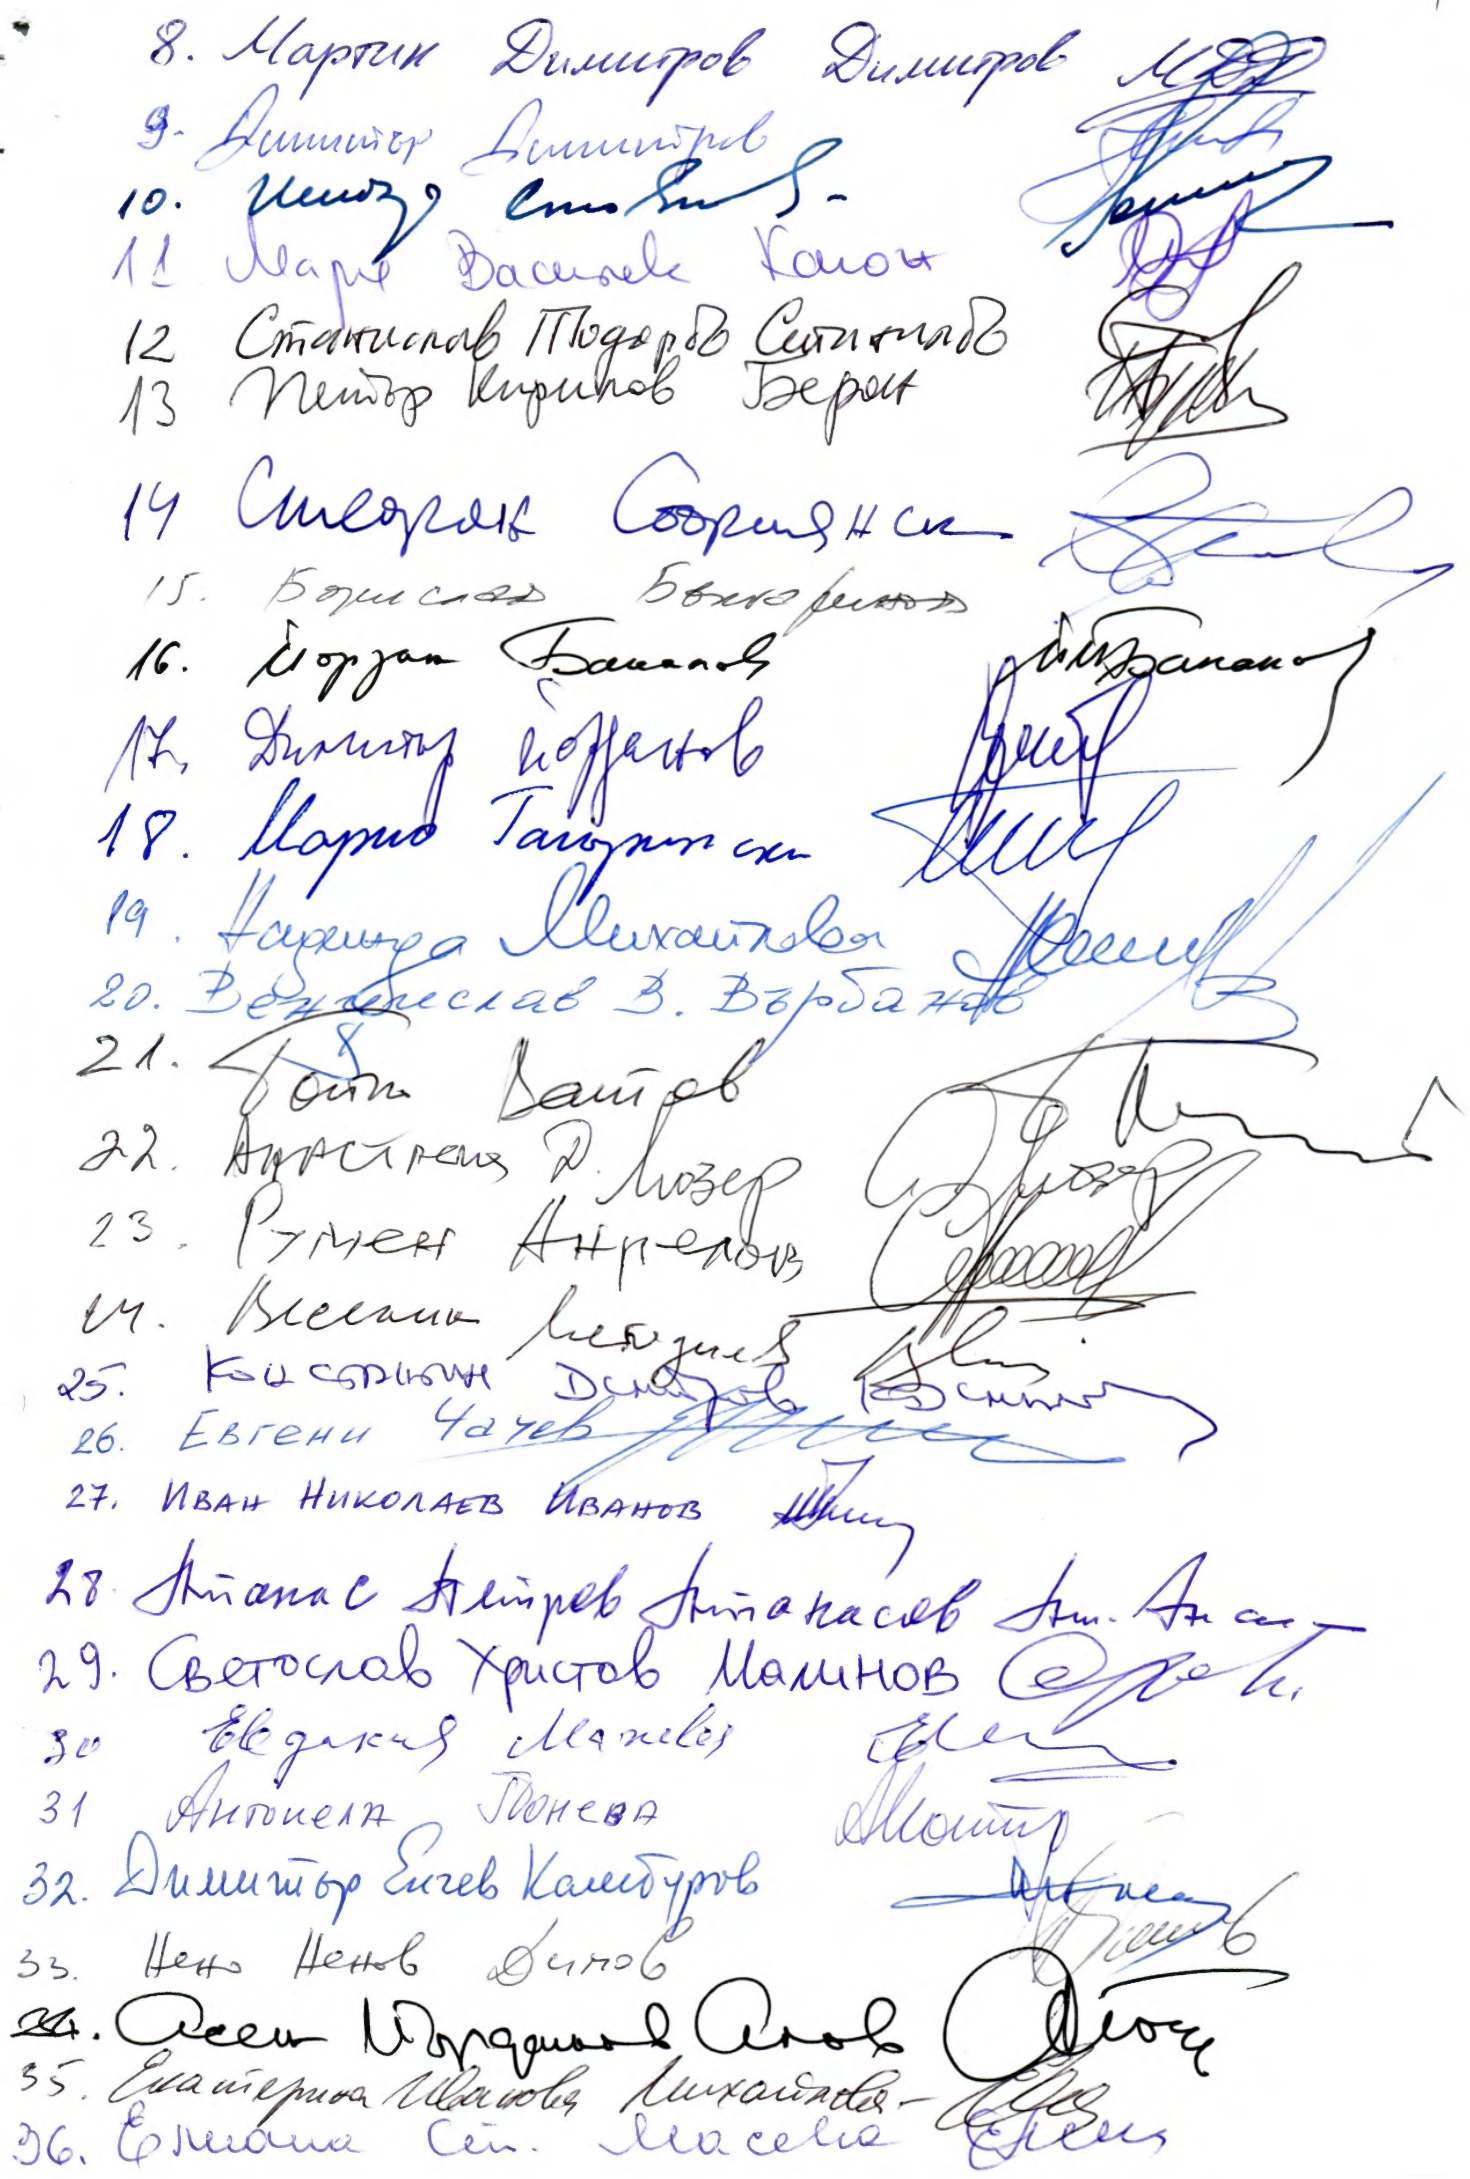 8. Мартин Димитров Димитров
9. Димитър Димитров
10. Петър Стоянов
11 Мария Василева Капон
12 Станислав Тодоров Станилов
13 Петър Кирилов Берон
14 Стефан Софиянски
15. Борислав
16. Йордан Бакалов Бакалов
17. Димитър Йорданов
18. Марио Тагарински
19. Надежда Михайлова
20. Венцислав В. Върбанов
21. Тома
22. Анастасия Д. Мозер Мозер
23. Румен Ангелов
24. Веселин Методиев
25. Константин Димитров
26. Евгени Чачев
27. Иван Николаев Иванов
28. Атанас Петров Атанасов
29. Светослав Христов Малинов
30 Евдокия Манева
31 Антонела Понева
32. Димитър Енчев Камбуров
33. Нено Ненов Димов
34. Асен Йорданов Агов
35. Екатерина Иванова Михайлова
36. Елиана Ст. Масева